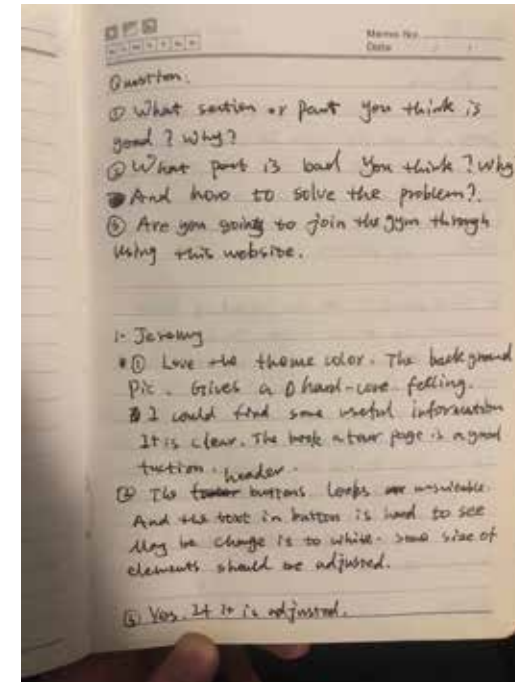 Memo No.
Date / /
Question.
① What section or part you think is
good? Why?
② What part is bad you think? Why
And how to solve the problem?.
③ Are you going to join the gym through
using this website.
1. Jeremy
① Love the theme color. The background
Pic. Gives a hard-core felling.
I could find some useful information
It is clear. The book a tour page is a good
header.
② The buttons looks
And the text in button is hard to see
May be change is to white. some size of
elements should be adjusted.
③ Yes. If it is adjusted.